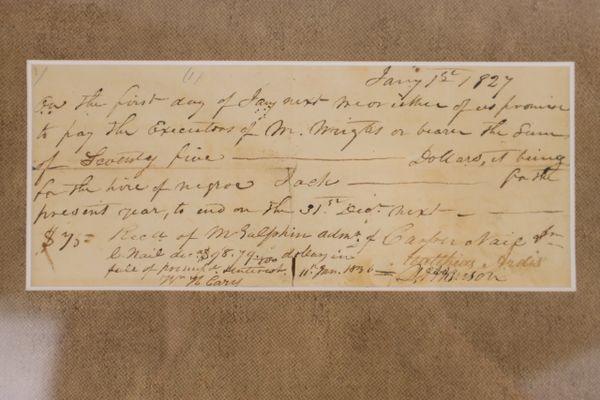 Jany 1st 1827
On the first day of Jany next we or either of us promise
to pay the Executors of M. Wright or bearer the Sum
of Seventy five Dollars, it being
for the hire of negroe Jack for the
present year, to end on the 31st Decr next
$75 Recd of McGulphin admr of
C Nail dec $98.79 dollars in
full of principl & interest 11th Jan. 1830
Wm H Cary